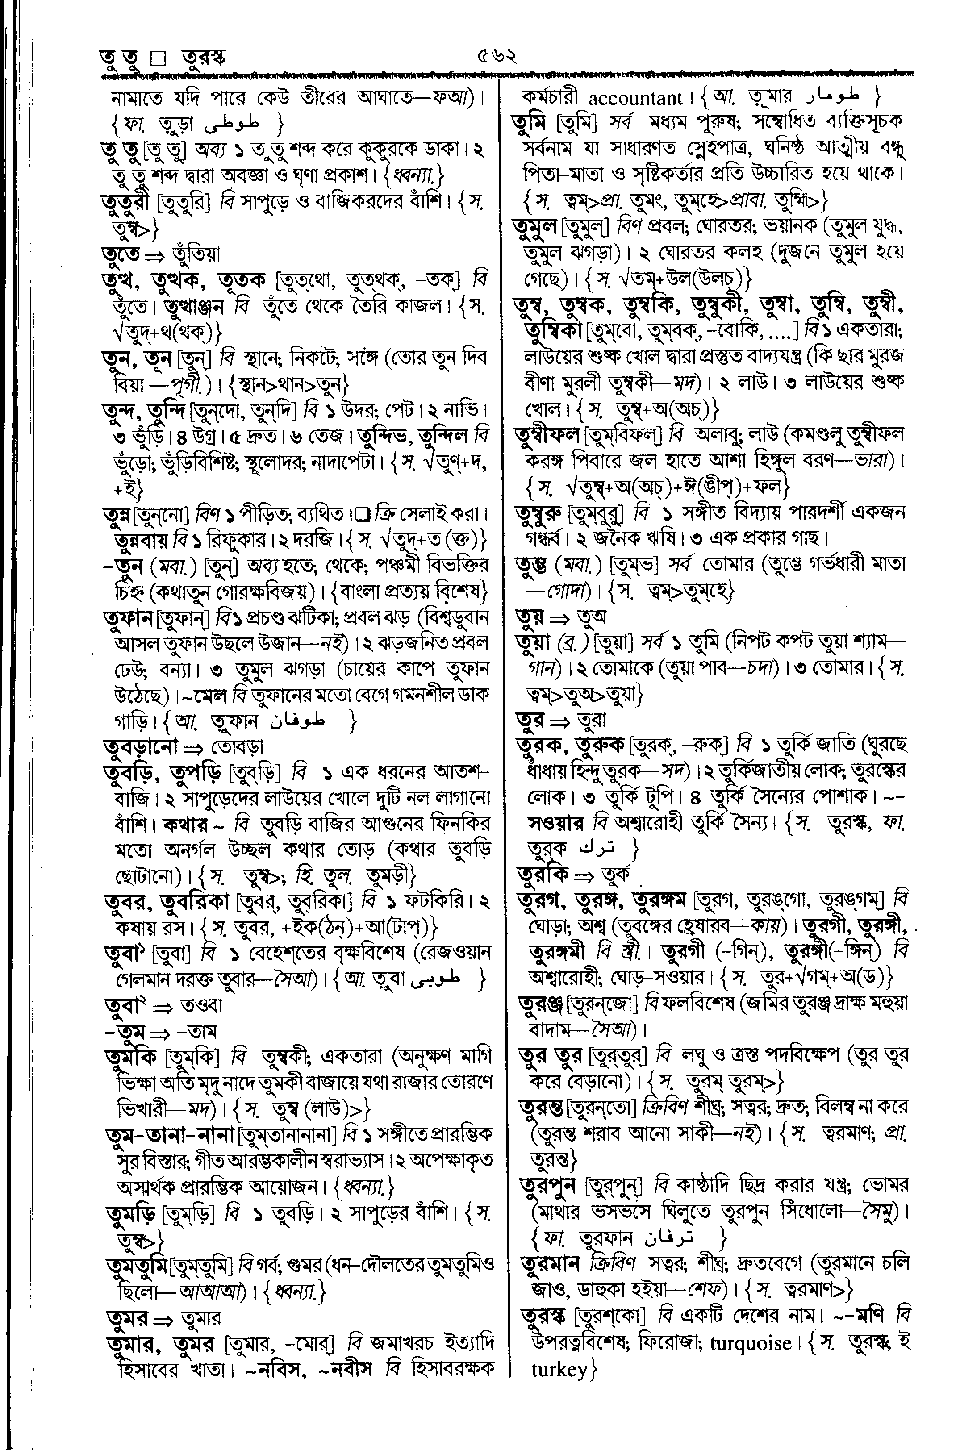 তু তু □ তুরস্ক
৫৬২
নামাতে যদি পারে কেউ তীরের আঘাতে—ফআ)।
{ফা. তূড়া طوطى }
তু তু [তু তু] অব্য ১ তু তু শব্দ করে কুকুরকে ডাকা। ২
তু তু শব্দ দ্বারা অবজ্ঞা ও ঘৃণা প্রকাশ। {ধ্বন্যা.}
তুতুরী [তুতুরি] বি সাপুড়ে ও বাজিকরদের বাঁশি। {স.
তুম্ব>}
তুতে ⇒ তুঁতিয়া
তুত্থ, তুত্থক, তূতক [তুত্‌থো, তুত্‌থক্, -তক্] বি
তুঁতে। তুত্থাঞ্জন বি তুঁতে থেকে তৈরি কাজল। {স.
√তুদ্+থ(থক্)}
তুন, তূন [তুন্] বি স্থানে; নিকটে; সঙ্গে (তোর তুন দিব
বিয়া—পূগী.)। {স্থান>থান>তুন}
তুন্দ, তুন্দি [তুন্‌দো, তুন্‌দি] বি ১ উদর; পেট। ২ নাভি।
৩ ভুঁড়ি। ৪ উগ্র। ৫ দ্রুত। ৬ তেজ। তুন্দিভ, তুন্দিল বি
ভুঁড়ো; ভুঁড়িবিশিষ্ট; স্থূলোদর; নাদাপেটা। {স. √তুণ্+দ,
+ই}
তুন্ন [তুন্‌নো] বিণ ১ পীড়িত; ব্যথিত। □ ক্রি সেলাই করা।
তুন্নবায় বি ১ রিফুকার। ২ দরজি। {স. √তুদ্+ত (ক্ত)}
-তুন (মবা.) [তুন্] অব্য হতে; থেকে; পঞ্চমী বিভক্তির
চিহ্ন (কথাতুন গোরক্ষবিজয়)। {বাংলা প্রত্যয় বিশেষ}
তুফান [তুফান্] বি ১ প্রচণ্ড ঝটিকা; প্রবল ঝড় (বিশ্বডুবান
আসল তুফান উছলে উজান—নই)। ২ ঝড়জনিত প্রবল
ঢেউ; বন্যা। ৩ তুমুল ঝগড়া (চায়ের কাপে তুফান
উঠেছে)। ~মেল বি তুফানের মতো বেগে গমনশীল ডাক
গাড়ি। {আ. তূফান طوفان }
তুবড়ানো ⇒ তোবড়া
তুবড়ি, তুপড়ি [তুব্‌ড়ি] বি ১ এক ধরনের আতশ-
বাজি। ২ সাপুড়েদের লাউয়ের খোলে দুটি নল লাগানো
বাঁশি। কথার ~ বি তুবড়ি বাজির আগুনের ফিনকির
মতো অনর্গল উচ্ছল কথার তোড় (কথার তুবড়ি
ছোটানো)। {স. তুম্ব>; হি. তুল. তুমড়ী}
তুবর, তুবরিকা [তুবর্, তুব্‌রিকা] বি ১ ফটকিরি। ২
কষায় রস। {স. তুবর, +ইক(ঠন্)+আ(টাপ্)}
তুবা১ [তুবা] বি ১ বেহেশতের বৃক্ষবিশেষ (রেজওয়ান
গেলমান দরক্ত তুবার—সৈআ)। {আ. তূবা طوبى }
তুবা২ ⇒ তওবা
-তুম ⇒ -তাম
তুমকি [তুম্‌কি] বি তুম্বকী; একতারা (অনুক্ষণ মাগি
ভিক্ষা অতি মৃদু নাদে তুমকী বাজায়ে যথা রাজার তোরণে
ভিখারী—মদ)। {স. তুম্ব (লাউ)>}
তুম-তানা-নানা [তুম্‌তানানানা] বি ১ সঙ্গীতে প্রারম্ভিক
সুর বিস্তার; গীত আরম্ভকালীন স্বরাভ্যাস। ২ অপেক্ষাকৃত
অসার্থক প্রারম্ভিক আয়োজন। {ধ্বন্যা.}
তুমড়ি [তুম্‌ড়ি] বি ১ তুবড়ি। ২ সাপুড়ের বাঁশি। {স.
তুম্ব>}
তুমতুমি [তুম্‌তুমি] বি গর্ব; গুমর (ধন-দৌলতের তুমতুমিও
ছিলো—আআআ)। {ধ্বন্যা.}
তুমর ⇒ তুমার
তুমার, তুমর [তুমার্, -মোর্] বি জমাখরচ ইত্যাদি
হিসাবের খাতা। ~নবিস, ~নবীস বি হিসাবরক্ষক
কর্মচারী accountant। {আ. তূমার طومار }
তুমি [তুমি] সর্ব মধ্যম পুরুষ; সম্বোধিত ব্যক্তিসূচক
সর্বনাম যা সাধারণত স্নেহপাত্র, ঘনিষ্ঠ আত্মীয় বন্ধু
পিতা-মাতা ও সৃষ্টিকর্তার প্রতি উচ্চারিত হয়ে থাকে।
{স. ত্বম্>প্রা. তুমং, তুম্‌হে>প্রাবা. তুম্মি>}
তুমুল [তুমুল্] বিণ প্রবল; ঘোরতর; ভয়ানক (তুমুল যুদ্ধ,
তুমুল ঝগড়া)। ২ ঘোরতর কলহ (দুজনে তুমুল হয়ে
গেছে)। {স. √তম্+উল(উলচ্)}
তুম্ব, তুম্বক, তুম্বকি, তুম্বুকী, তুম্বা, তুম্বি, তুম্বী,
তুম্বিকা [তুম্‌বো, তুম্‌বক্, -বোকি, ....] বি ১ একতারা;
লাউয়ের শুষ্ক খোল দ্বারা প্রস্তুত বাদ্যযন্ত্র (কি ছার মুরজ
বীণা মুরলী তুম্বকী—মদ)। ২ লাউ। ৩ লাউয়ের শুষ্ক
খোল। {স. তুম্ব+অ(অচ্)}
তুম্বীফল [তুম্‌বিফল্] বি অলাবু; লাউ (কমণ্ডলু তুম্বীফল
করঙ্গ পিবারে জল হাতে আশা হিঙ্গুল বরণ—ভারা)।
{স. √তুম্ব+অ(অচ্)+ঈ(ঙীপ্)+ফল}
তুম্বুরু [তুম্‌বুরু] বি ১ সঙ্গীত বিদ্যায় পারদর্শী একজন
গন্ধর্ব। ২ জনৈক ঋষি। ৩ এক প্রকার গাছ।
তুম্ভ (মবা.) [তুম্‌ভ] সর্ব তোমার (তুম্ভে গর্ভধারী মাতা
—গোদা)। {স. ত্বম্>তুম্‌হে}
তুয় ⇒ তুঅ
তুয়া (ব্র.) [তুয়া] সর্ব ১ তুমি (নিপট কপট তুয়া শ্যাম—
গান)। ২ তোমাকে (তুয়া পাব—চদা)। ৩ তোমার। {স.
ত্বম্>তুঅ>তুয়া}
তুর ⇒ তুরা
তুরক, তুরুক [তুরক্, -রুক্] বি ১ তুর্কি জাতি (ঘুরছে
ধাঁধায় হিন্দু তুরক—সদ)। ২ তুর্কিজাতীয় লোক; তুরস্কের
লোক। ৩ তুর্কি টুপি। ৪ তুর্কি সৈন্যের পোশাক। ~-
সওয়ার বি অশ্বারোহী তুর্কি সৈন্য। {স. তুরস্ক, ফা.
তুরক ترك }
তুরকি ⇒ তুর্ক
তুরগ, তুরঙ্গ, তুরঙ্গম [তুরগ্, তুরঙ্‌গো, তুরঙ্‌গম্] বি
ঘোড়া; অশ্ব (তুরঙ্গের হ্রেষারব—কায়)। তুরগী, তুরঙ্গী,
তুরঙ্গমী বি স্ত্রী। তুরগী (-গিন্), তুরঙ্গী(-ঙ্গিন্) বি
অশ্বারোহী; ঘোড়-সওয়ার। {স. তুর+√গম্+অ(ড)}
তুরঞ্জ [তুরন্‌জো] বি ফলবিশেষ (জমির তুরঞ্জ দ্রাক্ষ মহুয়া
বাদাম—সৈআ)।
তুর তুর [তুর্‌তুর্] বি লঘু ও ত্রস্ত পদবিক্ষেপ (তুর তুর
করে বেড়ানো)। {স. তুরম্ তুরম্>}
তুরন্ত [তুরন্‌তো] ক্রিবিণ শীঘ্র; সত্বর; দ্রুত; বিলম্ব না করে
(তুরন্ত শরাব আনো সাকী—নই)। {স. ত্বরমাণ; প্রা.
তুরন্ত}
তুরপুন [তুর্‌পুন্] বি কাষ্ঠাদি ছিদ্র করার যন্ত্র; ভোমর
(মাথার ভসভসে ঘিলুতে তুরপুন সিঁধোলো—সৈমু)।
{ফা. তুরফান ترفان }
তুরমান ক্রিবিণ সত্বর; শীঘ্র; দ্রুতবেগে (তুরমানে চলি
জাও, ডাহুকা হইয়া—শেফ)। {স. ত্বরমাণ>}
তুরস্ক [তুরশ্‌কো] বি একটি দেশের নাম। ~-মণি বি
উপরত্নবিশেষ; ফিরোজা; turquoise। {স. তুরস্ক; ই
turkey}